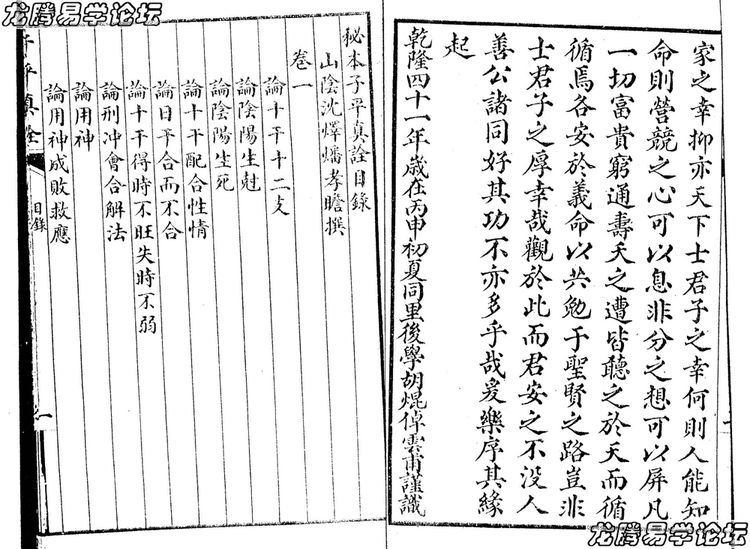 龙腾易学论坛
家之幸抑亦天下士君子之幸何則人能知
命則營競之心可以息非分之想可以屏凡
一切富貴窮通壽夭之遭皆聽之於天而循
循焉各安於義命以共勉于聖賢之路豈非
士君子之厚幸哉觀於此而君安之不没人
善公諸同好其功不亦多乎哉爰樂序其緣
起
乾隆四十一年歲在丙申初夏同里後學胡焜倬雲甫謹識
秘本子平真詮目錄
山陰沈燡燔孝瞻撰
卷一
論十干十二支
論陰陽生尅
論陰陽生死
論十干配合性情
論日干合而不合
論十干得時不旺失時不弱
論刑冲會合解法
論用神
論用神成敗救應
子平真詮
目錄
一
龙腾易学论坛